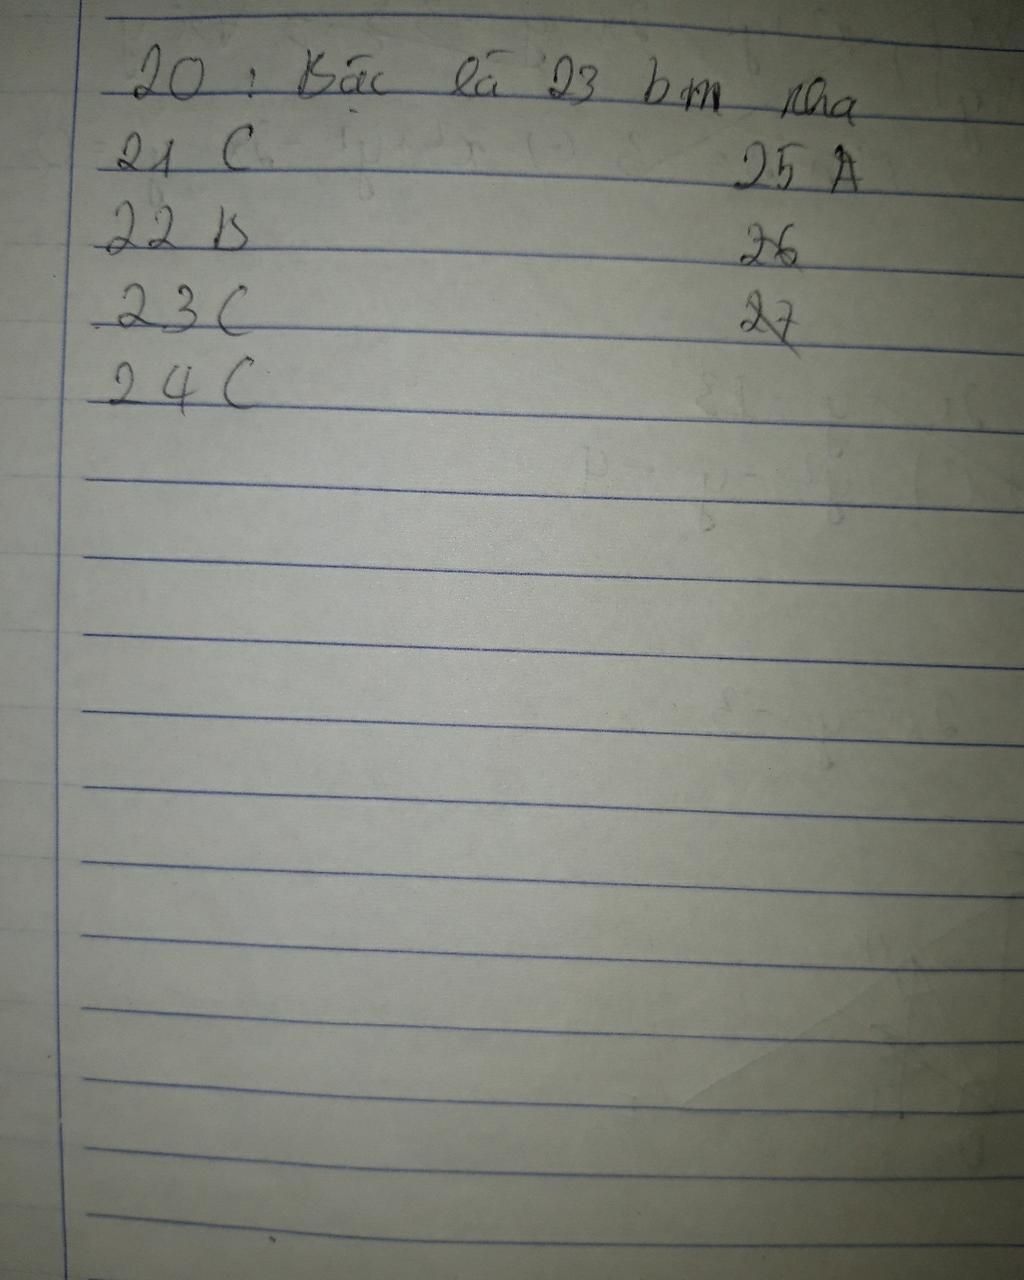 20 : Bậc là 23 bm nha
21 C
22 B
23 C
24 C
25 A
26
27